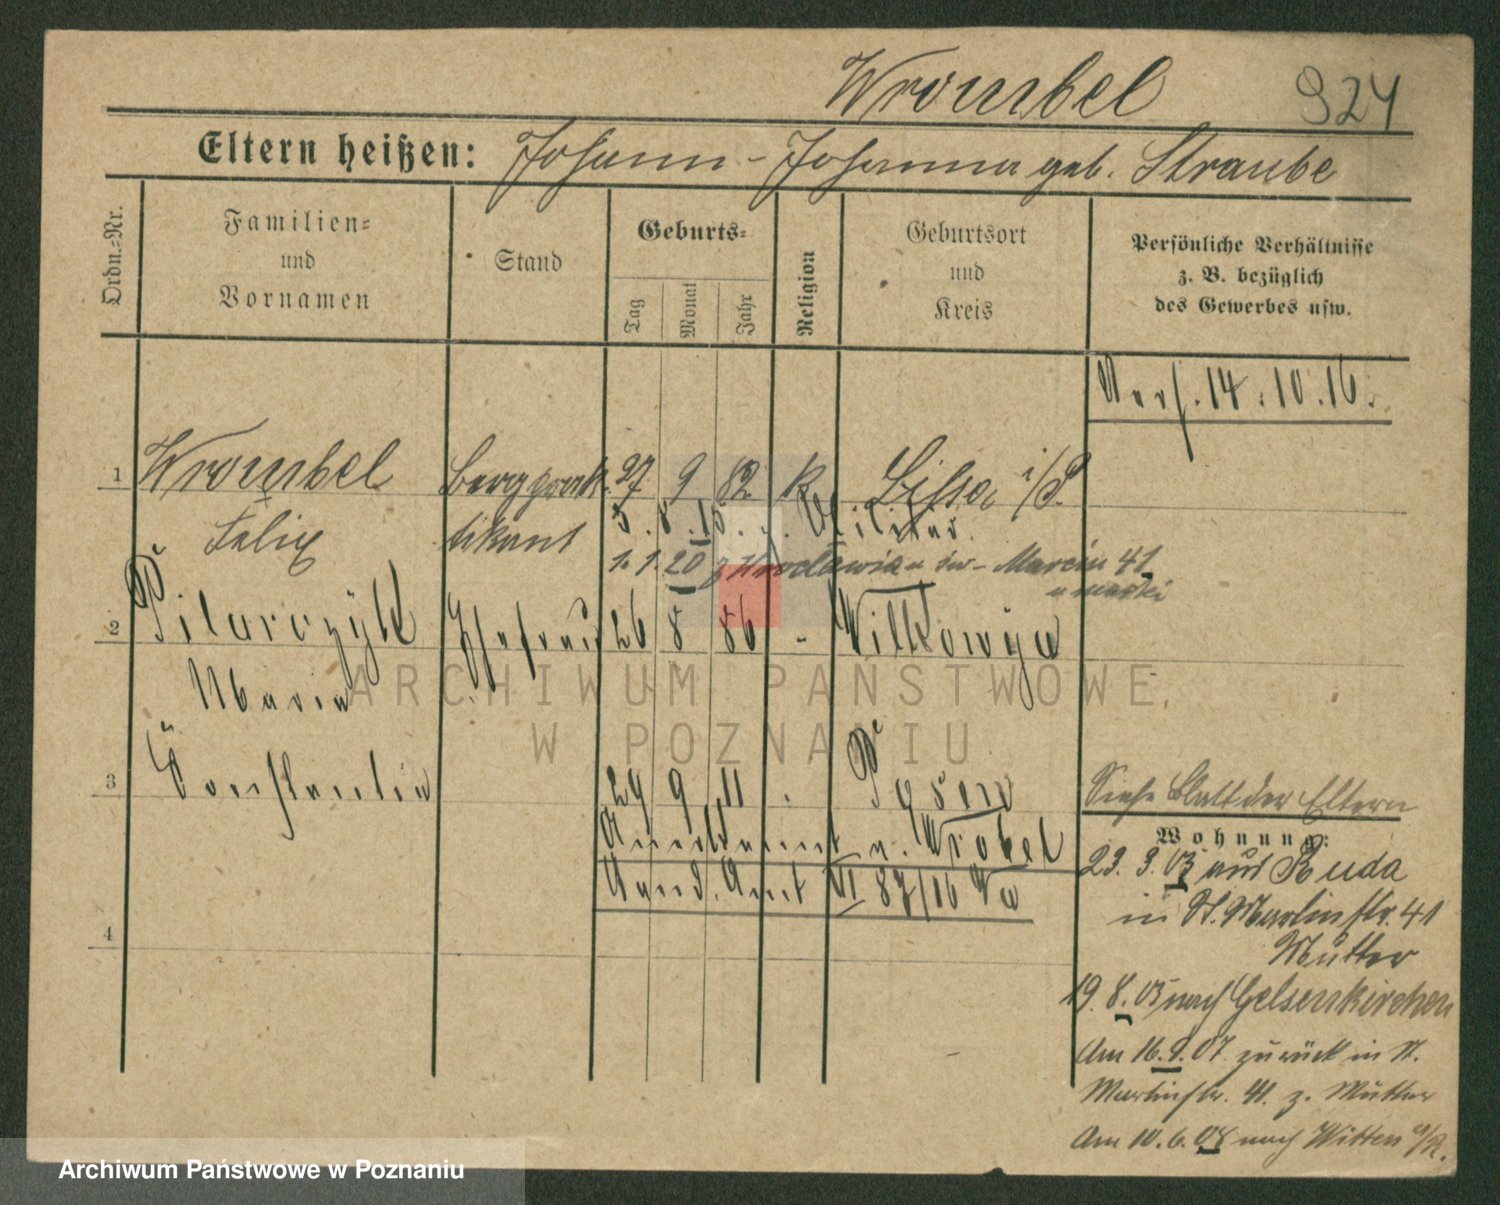 Wrombel 924
Eltern heißen: Johann - Johanna geb. Straube
Ordn.-Nr.
Familien=
und
Vornamen
Stand
Geburts=
Tag
Monat
Jahr
Religion
Geburtsort
und
Kreis
Persönliche Verhältnisse
z. B. bezüglich
des Gewerbes usw.
Verf. 14.10.16.
1 Wrombel Bergprak- 27 9 82 k Lissa i/P.
Felix tikant 5.8.15. z. Militär.
1.1.20 z Wrocławia u św- Marcin 41
u matki
2 Pilarczyk Ehefrau 26 8 86 - Wilkowyja
Maria
3 Constantin 29 9 11 Posen
Siehe Blatt der Eltern
a. Wrobel
Amt VI 87/16
4
Wohnung:
23. 3. 03 aus Ruda
in St. Martinstr. 41
Mutter
19. 8. 03 nach Gelsenkirchen
Am 16.9.07. zurück in St.
Martinstr. 41. z. Mutter
Am 10.6.08 nach Witten a/R.
ARCHIWUM PAŃSTWOWE
W POZNANIU
Archiwum Państwowe w Poznaniu